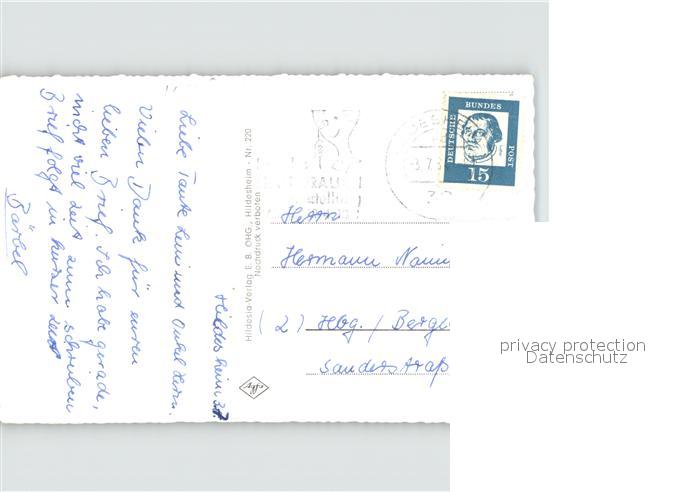 Hildesheim 3.7.
Liebe Tante Leni und Onkel Herm.
Vielen Dank für euren
lieben Brief. Ich habe gerade,
nicht viel Zeit zum schreiben
Brief folgt in kurzer Zeit
Bärbel
Hildesia-Verlag E. B. OHG., Hildesheim - Nr. 220
Nachdruck verboten
DEUTSCHE BUNDES POST
15
Herrn
Hermann
(2) Hbg. /
Sanderstraß
privacy protection
Datenschutz